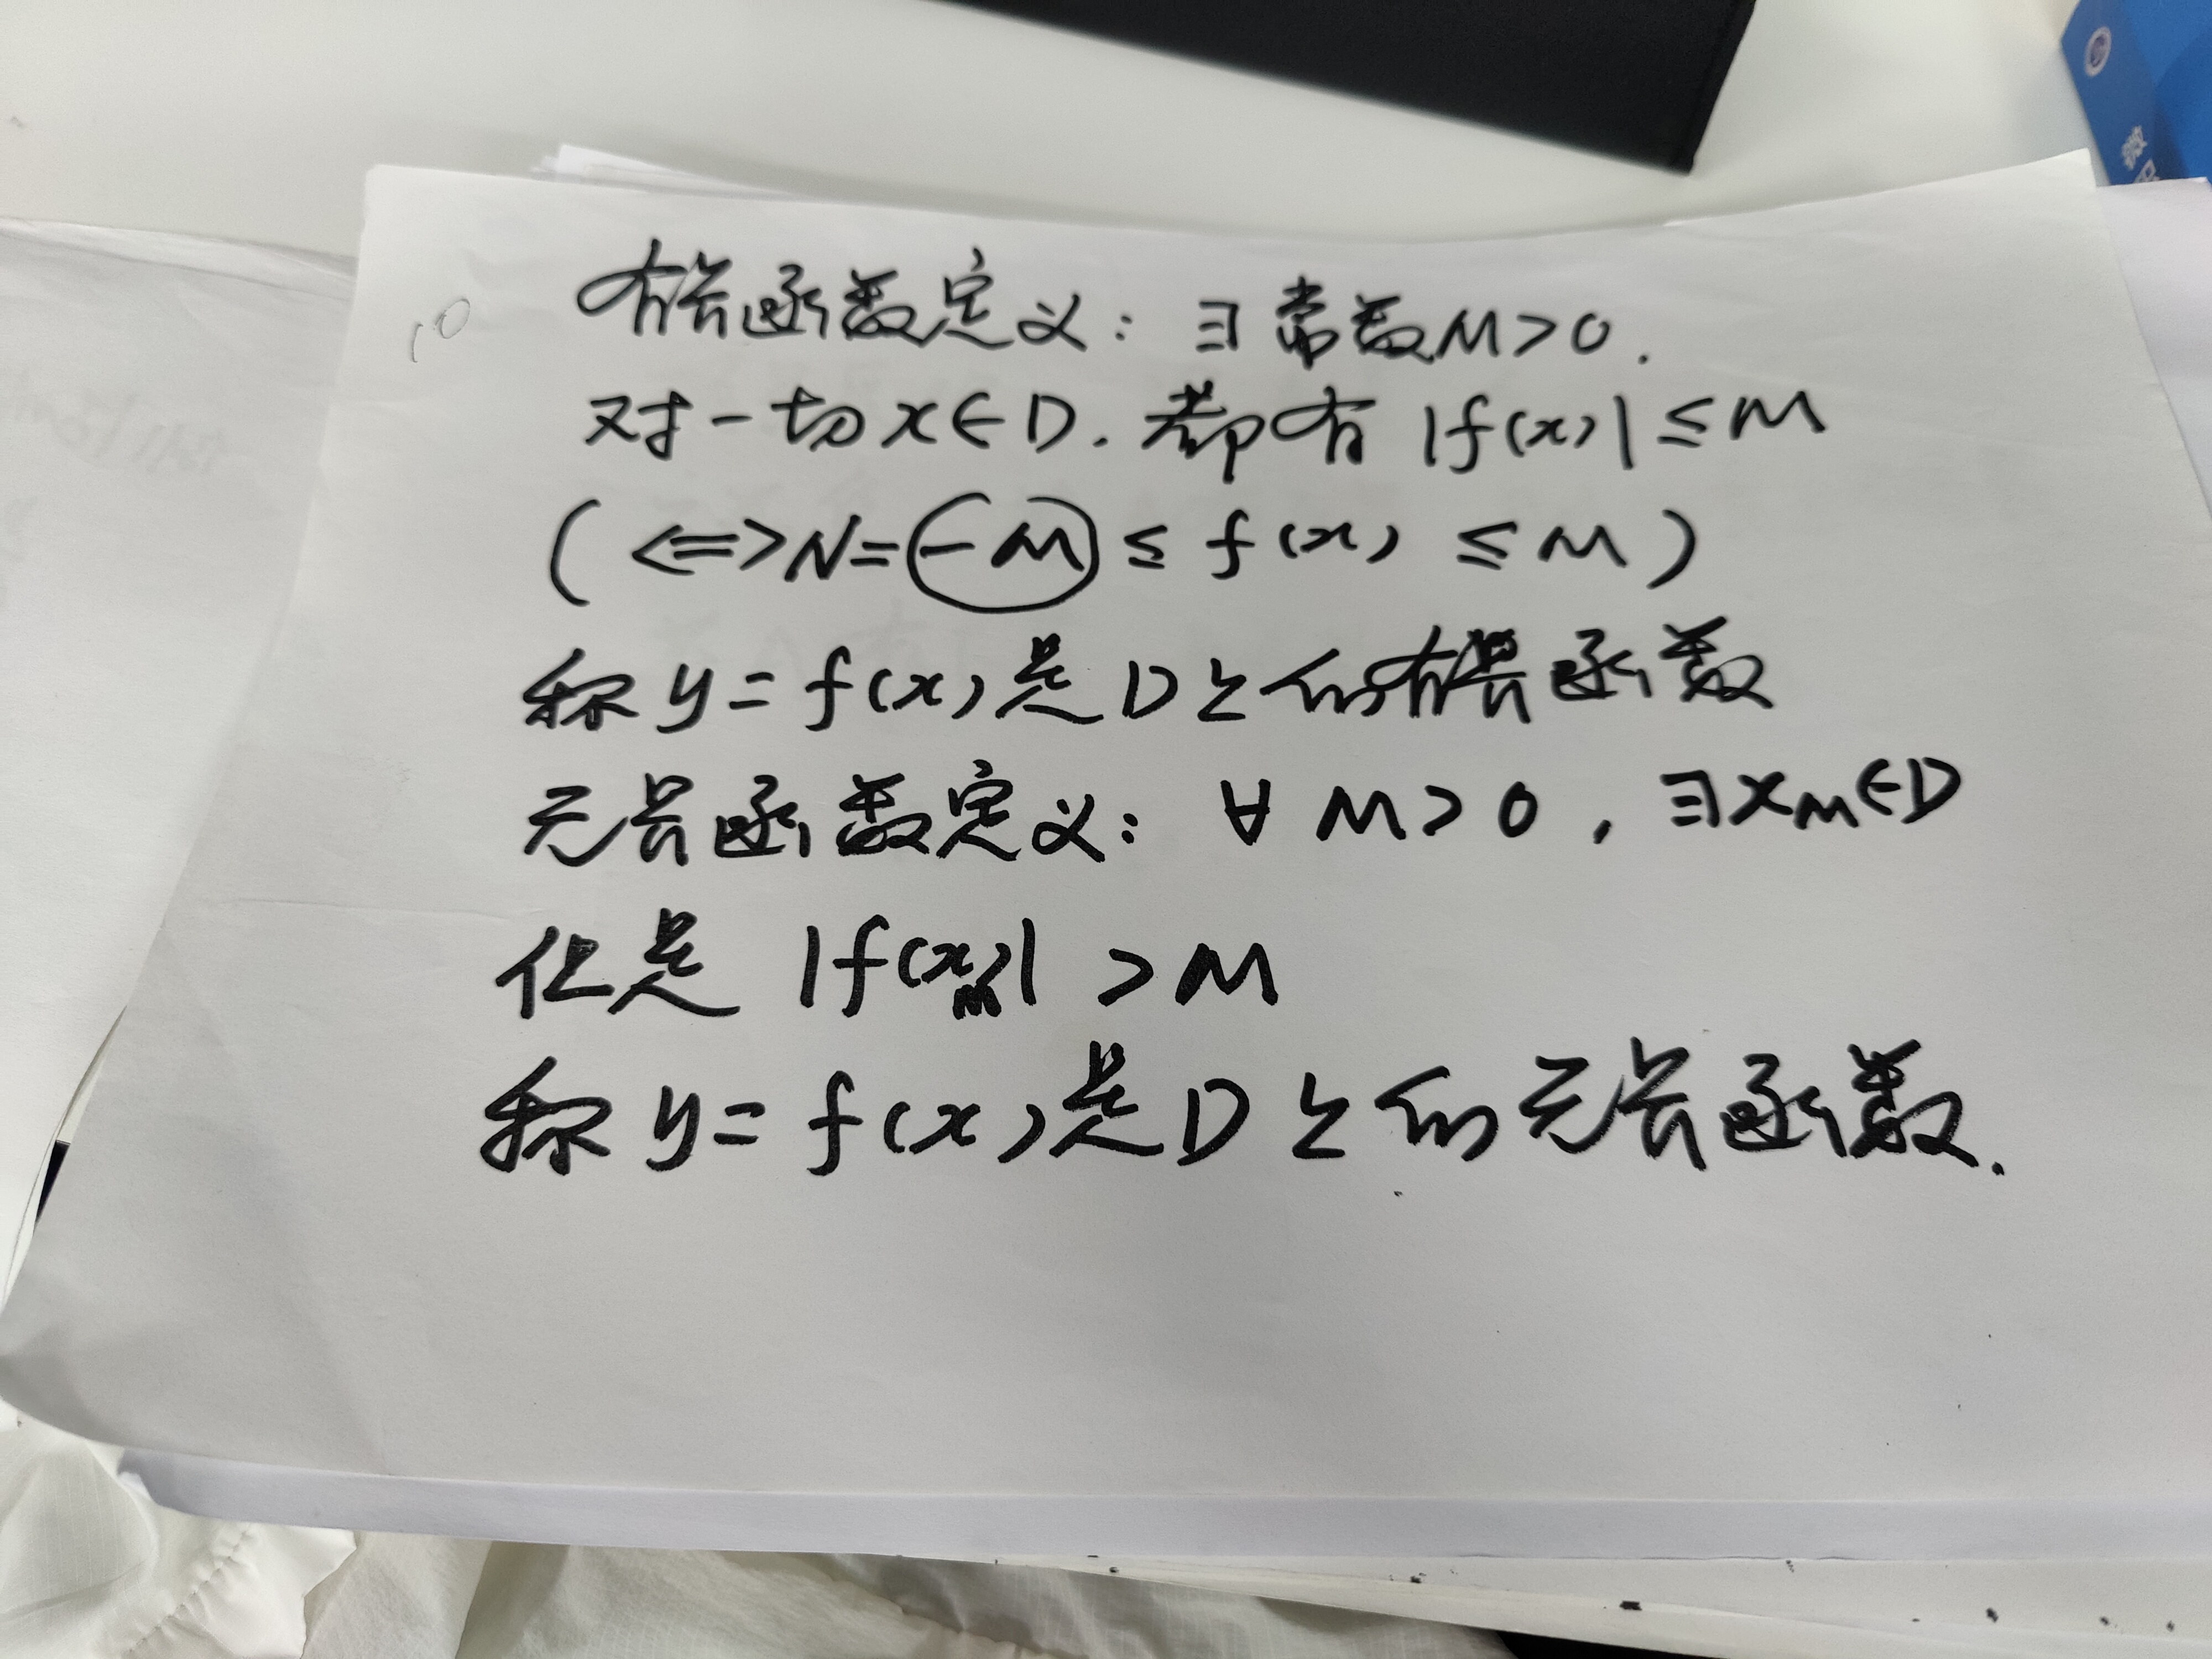 10
有界函数定义：∃常数M>0.
对一切x∈D.都有|f(x)|≤M
(<=>N=-M≤f(x)≤M)
称y=f(x)是D上的有界函数
无界函数定义：∀M>0，∃x_M∈D
但是|f(x_M)|>M
称y=f(x)是D上的无界函数.